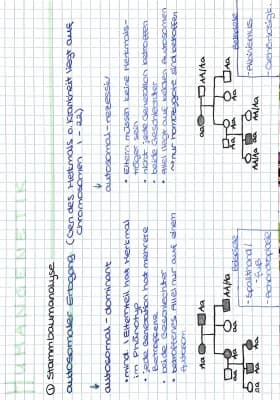 HUMANGENETIK
① Stammbaumanalyse
autosomaler Erbgang (Gen des Merkmals o. Krankheit liegt auf
Chromosomen 1 - 22)
autosomal - dominant
• mind. 1 Elternteil hat Merkmal
im Phänotyp
• jede Generation hat mehrere
Betroffene
• beide Geschlechter
• betroffenes Allel nur auf einem
Autosom
Beispiele
- Spalthand/
- fuß
- Achondroplasie
autosomal - rezessiv
• Eltern müssen keine Merkmals-
träger sein
• nicht jede Generation betroffen
• beide Geschlechter
• Allel liegt auf beiden Autosomen
nur homozygote sind betroffen
Beispiele
- Albinismus
Aa
aa
Aa
AA/Aa
aa
Aa
aa
aa
AA/Aa
Aa
Aa
aa